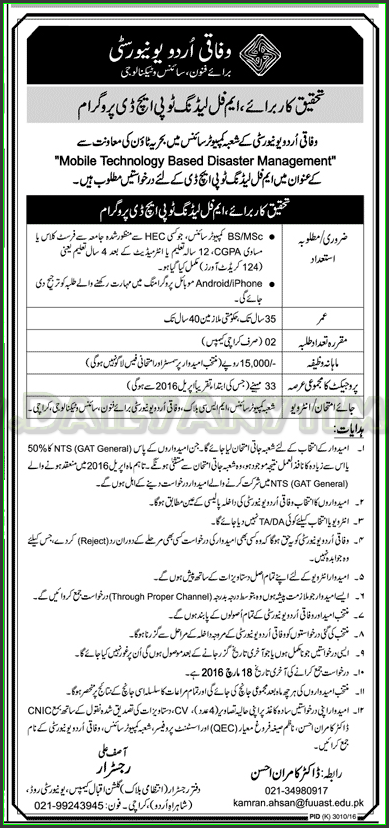 وفاقی اُردو یونیورسٹی
برائے فنون، سائنس وٹیکنالوجی
تحقیق کار برائے، ایم فل لیڈنگ ٹو پی ایچ ڈی پروگرام
وفاقی اُردو یونیورسٹی کے شعبہ کمپیوٹر سائنس میں بحریہ ٹاؤن کی معاونت سے
"Mobile Technology Based Disaster Management"
کے عنوان میں ایم فل لیڈنگ ٹو پی ایچ ڈی کے لئے درخواستیں مطلوب ہیں۔
تحقیق کار برائے، ایم فل لیڈنگ ٹو پی ایچ ڈی پروگرام
ضروری/مطلوبہ استعداد
● BS/MSc کمپیوٹر سائنس، جو کسی HEC سے منظور شدہ جامعہ سے فرسٹ کلاس یا
مساوی CGPA، 12 سالہ تعلیم یا انٹرمیڈیٹ کے بعد 4 سال تعلیم یعنی
(124 کریڈٹ آورز) مکمل کیا گیا ہو۔
● Android/iPhone موبائل پروگرامنگ میں مہارت رکھنے والے طلبہ کو ترجیح دی
جائے گی۔
عمر
35 سال تک، حکومتی ملازمین 40 سال تک
مقررہ تعداد طلبہ
02 (صرف کراچی کیمپس)
ماہانہ وظیفہ
15,000/- روپے (منتخب امیدوار پر سمسٹر اور امتحانی فیس لاگو نہیں ہوگی)
پروجیکٹ کا مجموعی عرصہ
33 مہینے (جس کی ابتدا تقریباً اپریل 2016 سے ہوگی)
جائے امتحان/انٹرویو
شعبہ کمپیوٹر سائنس، ایم ایس سی بلاک، وفاقی اُردو یونیورسٹی برائے فنون، سائنس وٹیکنالوجی، کراچی۔
ہدایات:
۱۔ امیدوار کے انتخاب کے لئے شعبہ جاتی امتحان لیا جائے گا۔ جن امیدواروں کے پاس NTS (GAT General) کا 50%
یا اس سے زیادہ کا نافذ العمل نتیجہ موجود ہو، وہ شعبہ جاتی امتحان سے مستثنیٰ ہونگے۔ تاہم ماہ اپریل 2016 میں منعقد ہونے والے
NTS (GAT General) میں شرکت کرنے والے امیدوار درخواست دینے کے اہل ہوں گے۔
۲۔ امیدواروں کا انتخاب وفاقی اُردو یونیورسٹی کی داخلہ پالیسی کے عین مطابق ہوگا۔
۳۔ انٹرویو یا انتخاب کیلئے کوئی TA/DA نہیں دیا جائے گا۔
۴۔ وفاقی اُردو یونیورسٹی کو یہ حق ہوگا کہ وہ کسی بھی امیدوار کی درخواست کسی بھی مرحلے کے دوران رد (Reject) کر دے، جس کیلئے
وہ جوابدہ نہیں۔
۵۔ امیدوار انٹرویو کے لئے اپنے تمام اصل دستاویزات کے ساتھ پیش ہوں گے۔
۶۔ ایسے امیدوار جو ملازمت پیشہ ہوں وہ بتوسط درجہ بدرجہ (Through Proper Channel) درخواست جمع کروائیں گے۔
۷۔ منتخب امیدوار وفاقی اُردو یونیورسٹی کے تمام اُصولوں کے پابند ہوں گے۔
۸۔ منتخب کی گئی درخواستوں کو وفاقی اُردو یونیورسٹی کے مروجہ داخلہ کے مراحل سے گزرنا ہوگا۔
۹۔ ایسی درخواستیں جو نامکمل ہوں یا جو آخری تاریخ گزر جانے کے بعد موصول ہوں گی اُن پر غور نہیں کیا جائے گا۔
۱۰۔ درخواست جمع کرانے کی آخری تاریخ 18 مارچ 2016 ہے۔
۱۱۔ منتخب امیدواروں کی ہر چھ ماہ بعد مجموعی جانچ کی جائے گی اور تمام مراعات کا سلسلہ اسی جانچ کے نتائج پر منحصر ہوگا۔
۱۲۔ امیدوار اپنی درخواستیں سادہ کاغذ پر اپنی حالیہ تصاویر (4 عدد)، CV، دستاویزات کی تصدیق شدہ نقول کے ساتھ بمع CNIC
ڈاکٹر کامران احسن، ناظم صیغہ فروغ معیار (QEC) اور اسسٹنٹ پروفیسر، شعبہ کمپیوٹر سائنس، وفاقی اُردو یونیورسٹی کے نام
جمع کرائیں۔
آصف علی
رجسٹرار
دفتر رجسٹرار (انتظامی بلاک) گلشن اقبال کیمپس، یونیورسٹی روڈ،
(شاہراہ اُردو)، کراچی۔ فون: 021-99243945
رابطہ: ڈاکٹر کامران احسن
021-34980917
kamran.ahsan@fuuast.edu.pk
PID (K) 3010/16